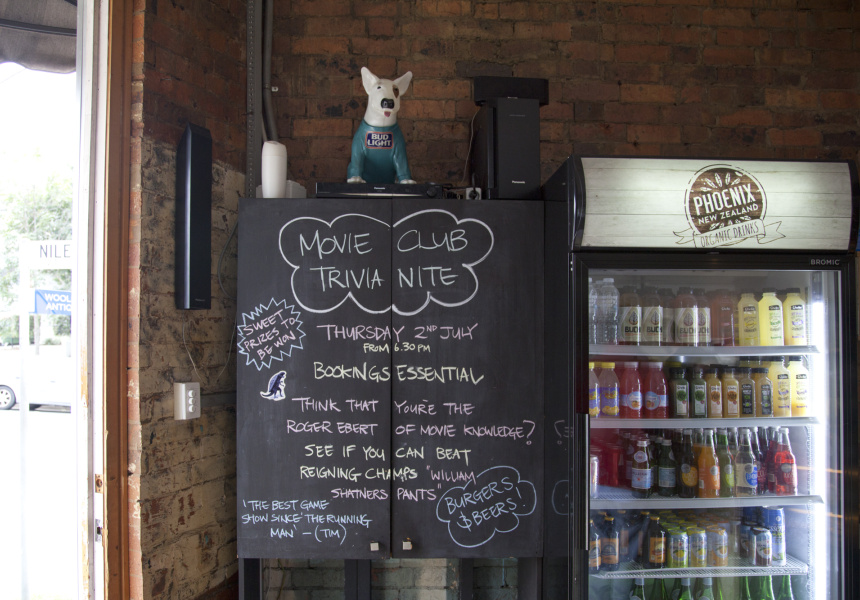 NILE
WOOL
ANTIC
BUD
LIGHT
Panasonic
MOVIE CLUB
TRIVIA NITE
SWEET
PRIZES TO
BE WON
THURSDAY 2ND JULY
FROM 6.30 PM
BOOKINGS ESSENTIAL
THINK THAT YOU'RE THE
ROGER EBERT OF MOVIE KNOWLEDGE?
SEE IF YOU CAN BEAT
REIGNING CHAMPS "WILLIAM
SHATNERS PANTS"
'THE BEST GAME
SHOW SINCE 'THE RUNNING
MAN' – (TIM)
BURGERS
$ BEERS!
PHOENIX
NEW ZEALAND
ORGANIC DRINKS
BROMIC